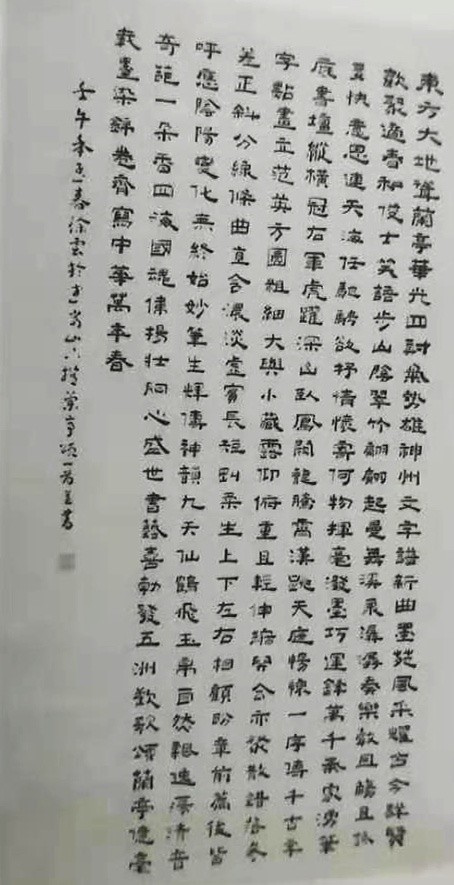 東方大地聳蘭亭華光四射氣勢雄神州文字譜新曲墨苑風采耀古今群賢
歡聚通春和俊士笑語步山陰翠竹翩翩起曼舞溪泉潺潺奏樂敘且觴且詠
夏快意思連天海任馳騁欲抒情懷寄何物揮毫潑墨巧運鋒萬千氣象湧筆
底書壇縱橫冠右軍虎躍深山臥鳳闕龍騰霄漢跳天庭慷慨一序傳千古
字點畫立范英方圓粗細大與小藏露仰俯重且輕伸縮開合亦從散錯落參
差正斜分線條曲直含濃淡虛實長短剛柔生上下左右相顧盼章前篇後皆
呼應陰陽變化無終始妙筆生輝傳神韻九天仙鶴飛玉帛自然流清音
奇葩一朵香四海國魂律揚壯同心盛世書藝喜勃發五洲歡歌頌蘭亭億臺
觀畫染錦卷齊寫中華萬年春
壬午季春徐雲於山蘭亭頌一首並書